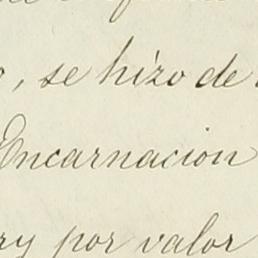 , se hizo de
Encarnacion
ry por valor